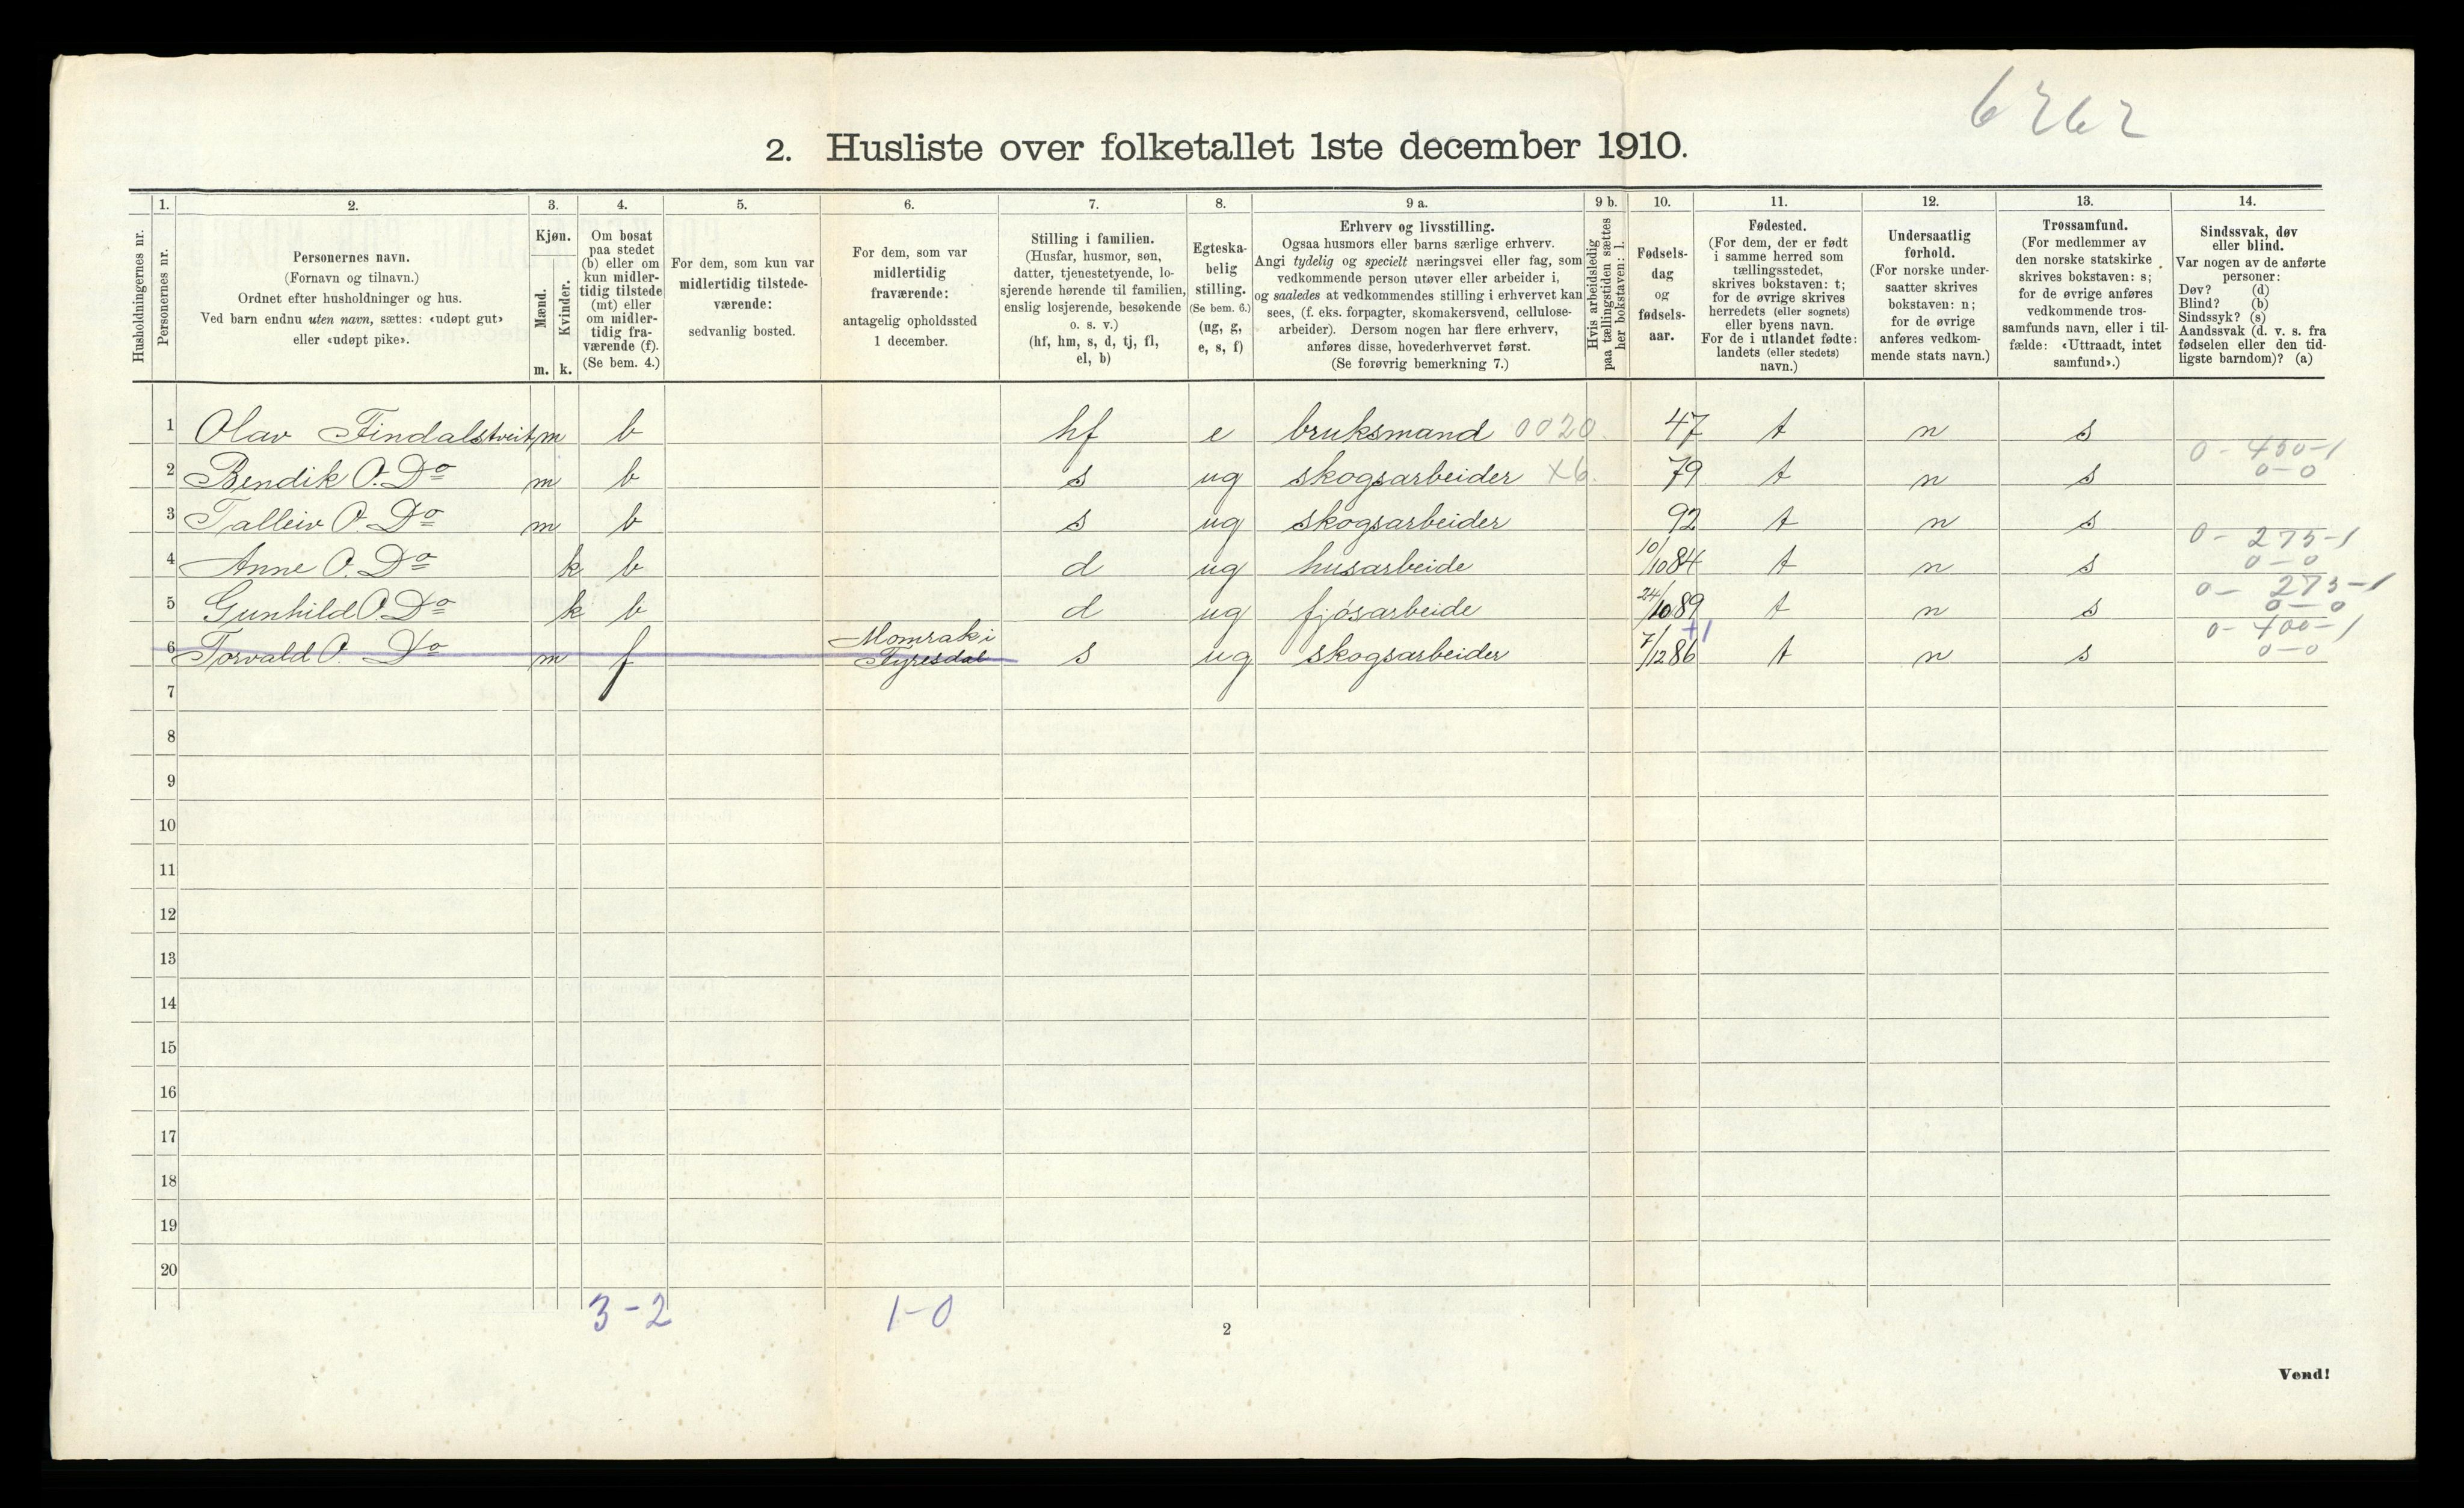 6262
2. Husliste over folketallet 1ste december 1910.
Husholdningernes nr.
1.
Personernes nr.
2.
Personernes navn.
(Fornavn og tilnavn.)
Ordnet efter husholdninger og hus.
Ved barn endnu uten navn, sættes: «udøpt gut»
eller «udøpt pike».
3.
Kjøn.
Mænd.
Kvinder.
m. k.
4.
Om bosat
paa stedet
(b) eller om
kun midler-
tidig tilstede
(mt) eller
om midler-
tidig fra-
værende (f).
(Se bem. 4.)
5.
For dem, som kun var
midlertidig tilstede-
værende:
sedvanlig bosted.
6.
For dem, som var
midlertidig
fraværende:
antagelig opholdssted
1 december.
7.
Stilling i familien.
(Husfar, husmor, søn,
datter, tjenestetyende, lo-
sjerende hørende til familien,
enslig losjerende, besøkende
o. s. v.)
(hf, hm, s, d, tj, fl,
el, b)
8.
Egteska-
belig
stilling.
(Se bem. 6.)
(ug, g,
e, s, f)
9 a.
Erhverv og livsstilling.
Ogsaa husmors eller barns særlige erhverv.
Angi tydelig og specielt næringsvei eller fag, som
vedkommende person utøver eller arbeider i,
og saaledes at vedkommendes stilling i erhvervet kan
sees, (f. eks. forpagter, skomakersvend, cellulose-
arbeider). Dersom nogen har flere erhverv,
anføres disse, hovederhvervet først.
(Se forøvrig bemerkning 7.)
9 b.
Hvis arbeidsledig
paa tællingstiden sættes
her bokstaven: l.
10.
Fødsels-
dag
og
fødsels-
aar.
11.
Fødested.
(For dem, der er født
i samme herred som
tællingsstedet,
skrives bokstaven: t;
for de øvrige skrives
herredets (eller sognets)
eller byens navn.
For de i utlandet fødte:
landets (eller stedets)
navn.)
12.
Undersaatlig
forhold.
(For norske under-
saatter skrives
bokstaven: n;
for de øvrige
anføres vedkom-
mende stats navn.)
13.
Trossamfund.
(For medlemmer av
den norske statskirke
skrives bokstaven: s;
for de øvrige anføres
vedkommende tros-
samfunds navn, eller i til-
fælde: «Uttraadt, intet
samfund».)
14.
Sindssvak, døv
eller blind.
Var nogen av de anførte
personer:
Døv? (d)
Blind? (b)
Sindssyk? (s)
Aandssvak (d. v. s. fra
fødselen eller den tid-
ligste barndom)? (a)
1 Olav Findalstveit m b hf e bruksmand 0020 47 t n s
0 - 450-1
2 Bendik O. Do m b s ug skogsarbeider X6. 79 t n s 0-0
3 Talleiv O. Do m b s ug skogsarbeider 92 t n s
0 - 275-1
4 Anne O. Do k b d ug husarbeide 10/10 84 t n s 0-0
0 - 275-1
5 Gunhild O. Do k b d ug fjósarbeide 24/10 89 t n s 0-0
+1 0 - 400-1
6 Torvald O. Do m f Momrak i Fyresdal s ug skogsarbeider 7/12 86 t n s 0-0
7
8
9
10
11
12
13
14
15
16
17
18
19
20
3-2 1-0
2
Vend!